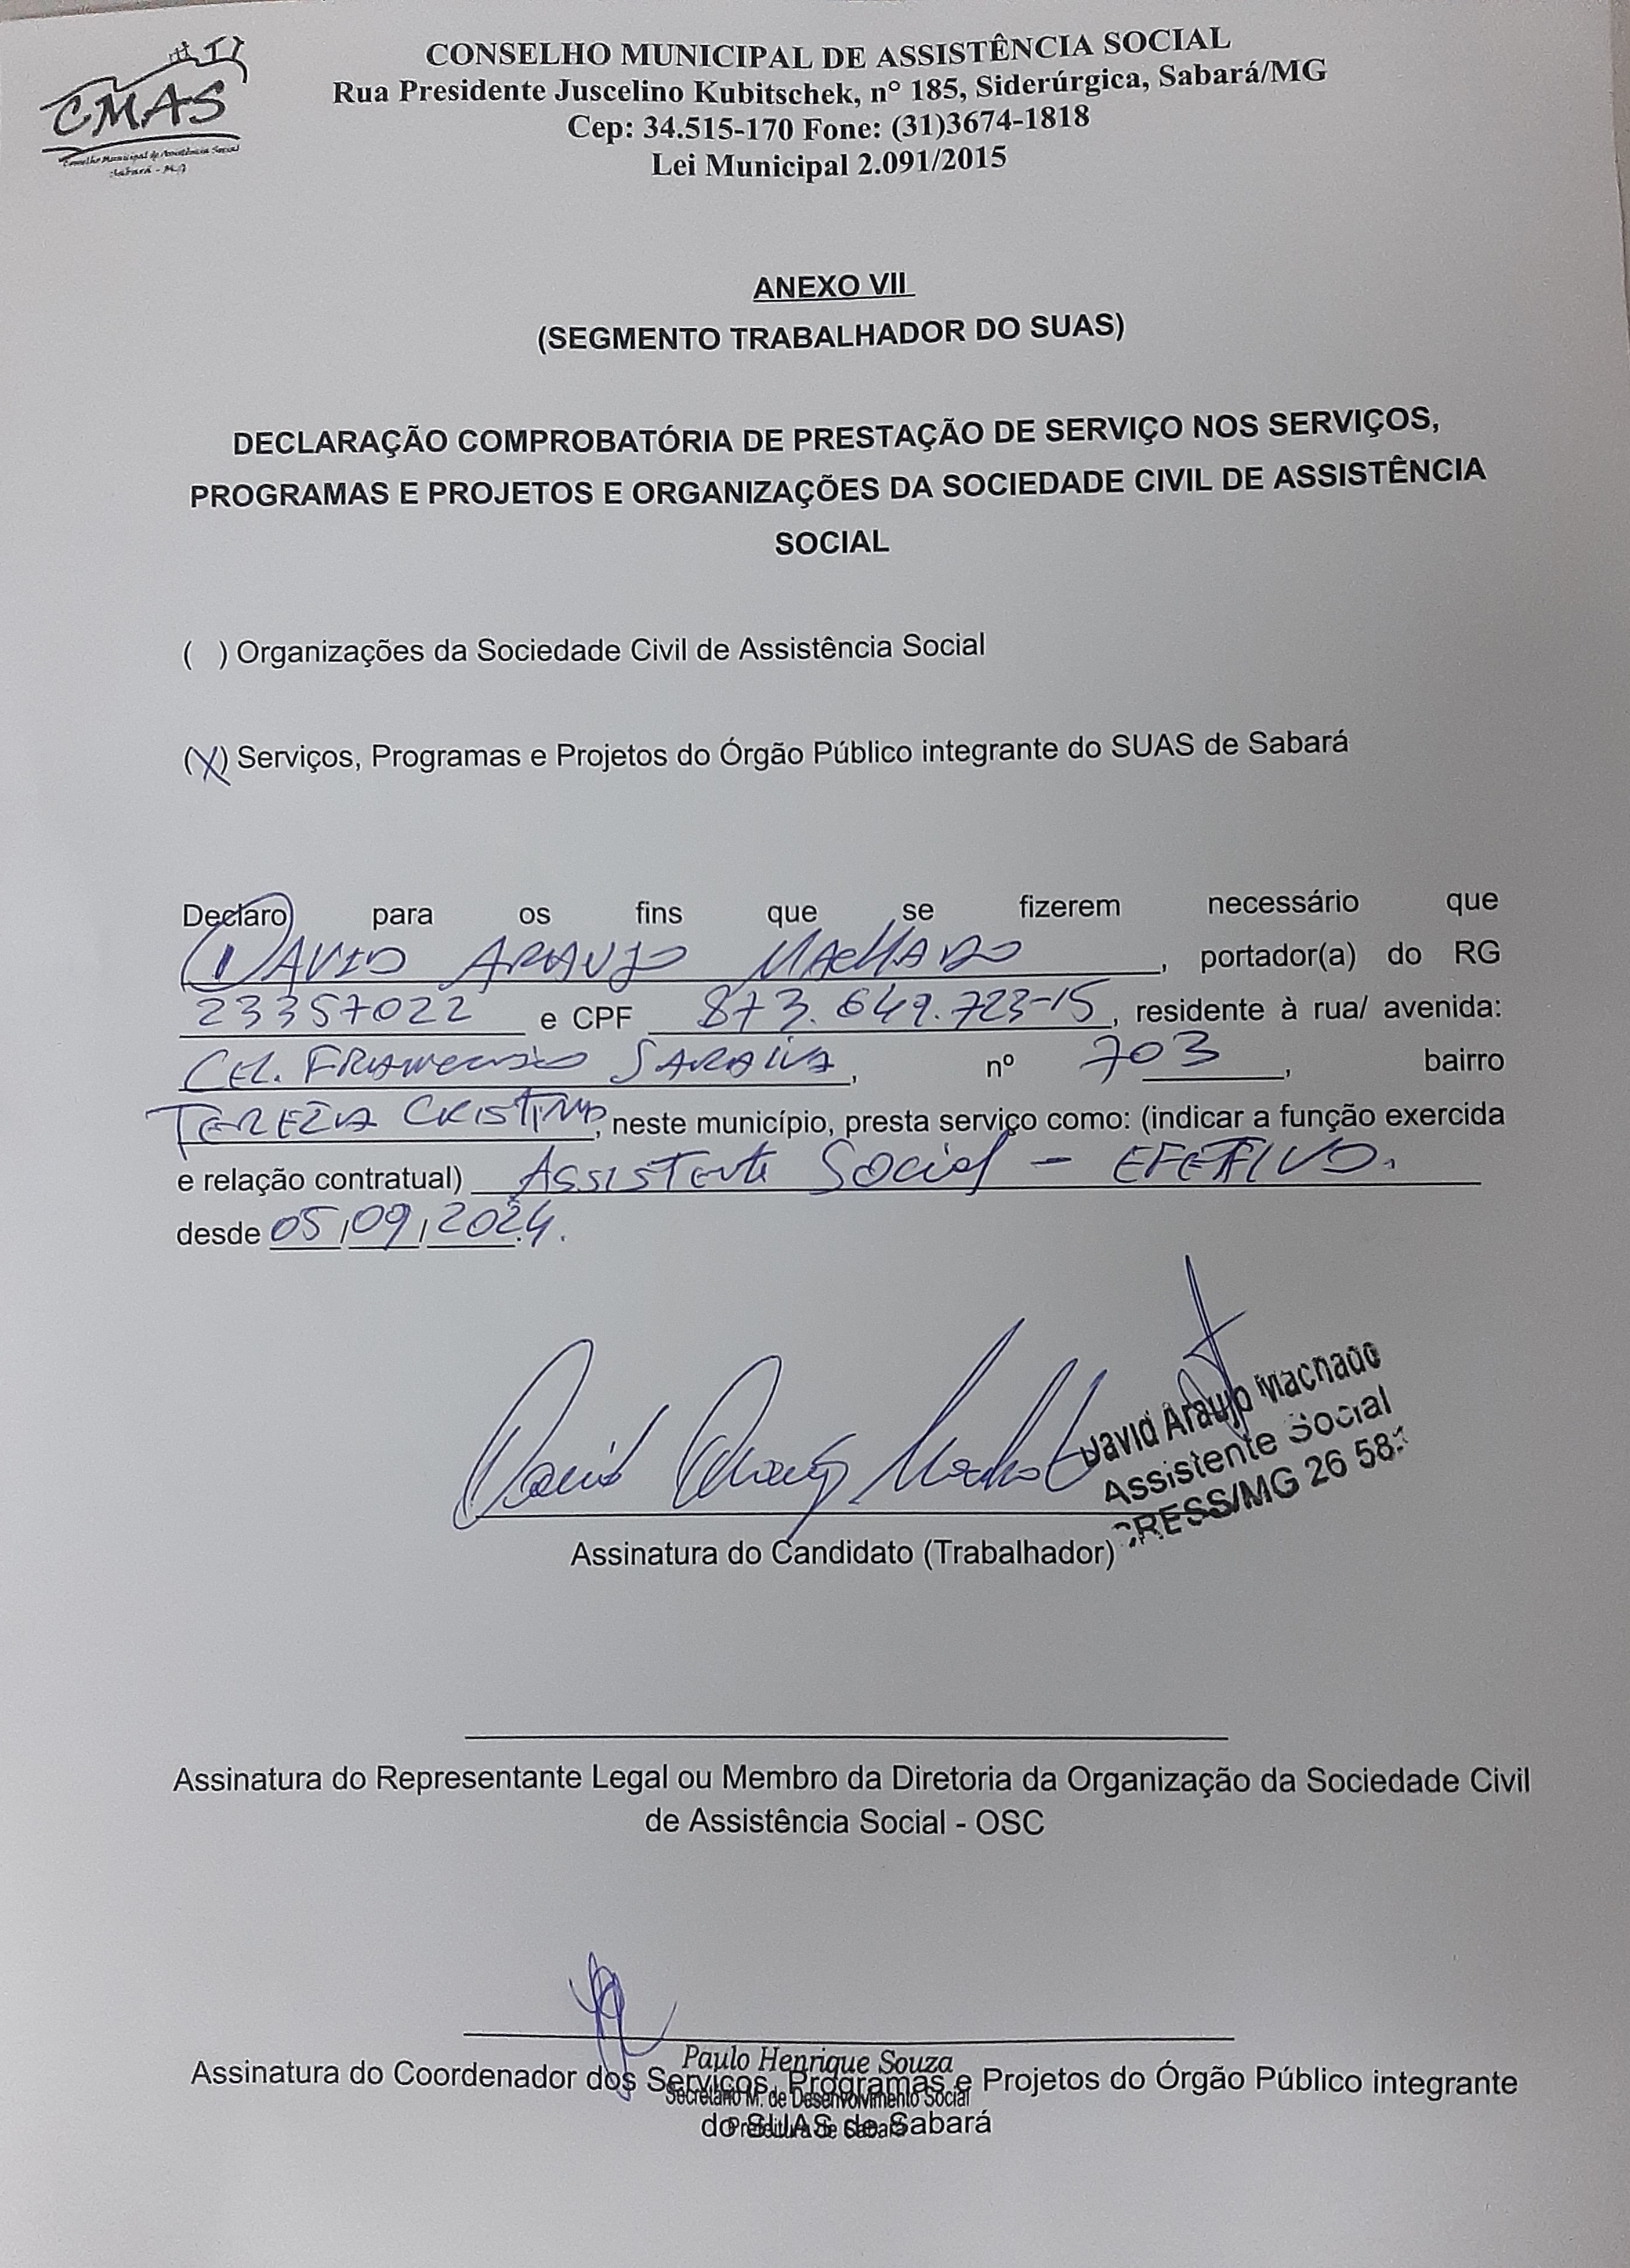 CMAS
Conselho Municipal de Assistência Social
Sabará - MG
CONSELHO MUNICIPAL DE ASSISTÊNCIA SOCIAL
Rua Presidente Juscelino Kubitschek, nº 185, Siderúrgica, Sabará/MG
Cep: 34.515-170 Fone: (31)3674-1818
Lei Municipal 2.091/2015
ANEXO VII
(SEGMENTO TRABALHADOR DO SUAS)
DECLARAÇÃO COMPROBATÓRIA DE PRESTAÇÃO DE SERVIÇO NOS SERVIÇOS,
PROGRAMAS E PROJETOS E ORGANIZAÇÕES DA SOCIEDADE CIVIL DE ASSISTÊNCIA
SOCIAL
( ) Organizações da Sociedade Civil de Assistência Social
(X) Serviços, Programas e Projetos do Órgão Público integrante do SUAS de Sabará
Declaro para os fins que se fizerem necessário que
DAVID ARAUJO MACHADO, portador(a) do RG
23357022 e CPF 873.649.723-15, residente à rua/ avenida:
CEL. FRANCISCO SARAIVA, nº 703, bairro
TEREZA CRISTINA, neste município, presta serviço como: (indicar a função exercida
e relação contratual) ASSISTENTE SOCIAL - EFETIVO.
desde 05/09/2024.
David Araujo Machado
David Araujo Machado
Assistente Social
CRESS/MG 26 58
Assinatura do Candidato (Trabalhador)
Assinatura do Representante Legal ou Membro da Diretoria da Organização da Sociedade Civil
de Assistência Social - OSC
Paulo Henrique Souza
Assinatura do Coordenador dos Serviços, Programas e Projetos do Órgão Público integrante
Secretário M. de Desenvolvimento Social
do SUAS de Sabará
Prefeitura de Sabará